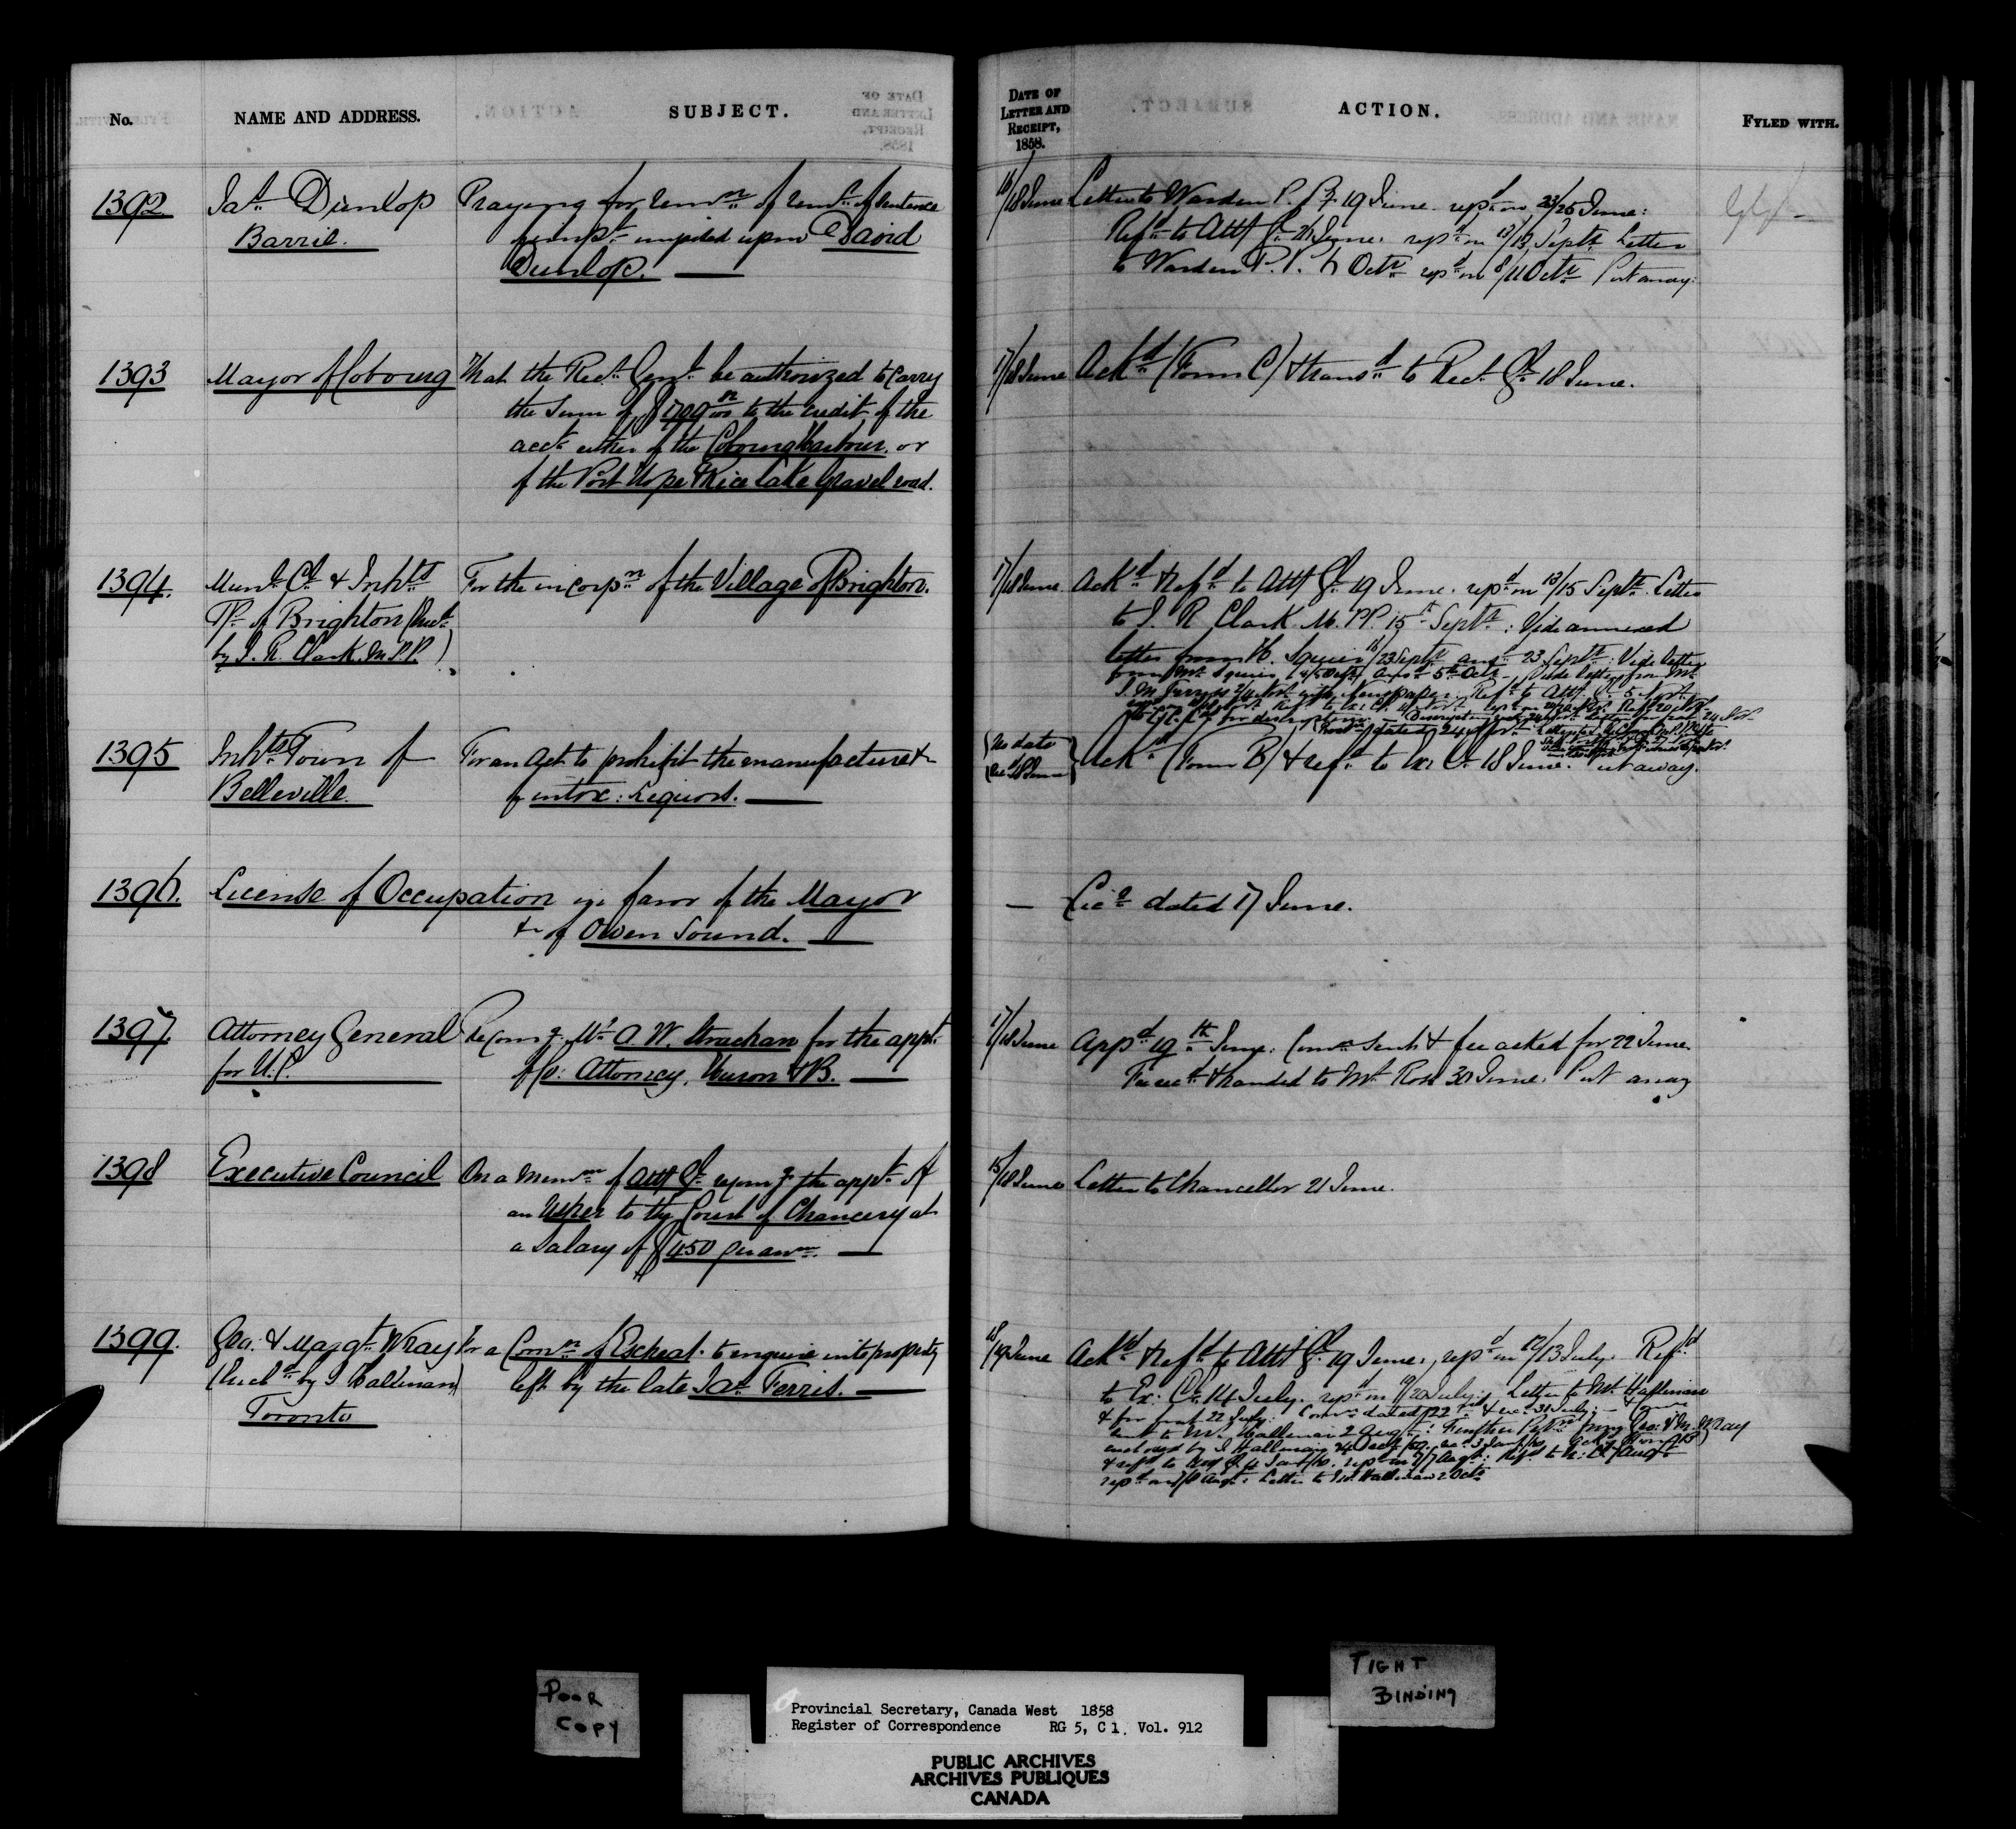 No.
NAME AND ADDRESS.
SUBJECT.
DATE OF LETTER AND RECEIPT, 1858.
ACTION.
FYLED WITH.
1392
Jas. Dunlop
Barrie.
Praying for remn. of remr. of sentence
impt. imposed upon David
Dunlop.
16/18 June
Letter to Warden P. P. 19 June. repd. on 23/25 June:
Refd. to Atty Gl. 26 June. repd. on 13/13 Septr. Letter
to Warden P. P. 6 Octr. repd. on 8/11 Octr. Put away.
1393
Mayor of Cobourg
That the Recr. Genl. be authorized to carry
the sum of to the credit of the
acct. either of the Cobourg Harbour, or
of the Port Hope & Rice Lake Gravel road.
17/18 June
Ackd. (Form C) & transd. to Recr. Gl. 18 June.
1394.
Munl. Cl. & Inhts.
Tp. of Brighton
by J. R. Clark. M.P.P.)
For the incorpn. of the Village of Brighton.
17/18 June
Ackd. & refd. to Atty Gl. 19 June. repd. on 13/15 Septr. Letter
to J. R. Clark M.P.P. 15 Septr.: Vide annexed
letter from H. Squier 16/23 Septr. ansd. 23 Septr.: Vide letter
from Mr. Squier 4/5 Octr. ansd. 5th Octr. Vide letter from Mr.
with Newspaper. Refd. to Atty. Gl. 5 Novr.
1395
Inhts. Town of
Belleville.
For an Act to prohibit the manufacture &c
of intox: Liquors.
(No date
Recd. 18 June)
Ackd. (Form B) & refd. to Ex: Cl. 18 June. Put away.
1396.
License of Occupation in favor of the Mayor
&c of Owen Sound.
—
Lice. dated 17 June.
1397.
Attorney General
for U.C.
Recomg. Mr. A. W. Strachan for the appt.
of Co: Attorney, Huron & B.
17/18 June
Appd. 19th June: Comn. sent & fee asked for 22 June.
Fee recd. & handed to Mr. Ross 30 June. Put away
1398
Executive Council
On a Memm. of Atty Gl. recomg. the appt. of
an Usher to the Court of Chancery at
a Salary of £450 per ann.
15/18 June
Letter to Chancellor 21 June.
1399.
Geo: & Margt. Wray
(Encd. by J. Hallinan)
Toronto
For a Comn. of Escheat to enquire into property
left by the late Jas. Ferris.
18/19 June
Ackd. & refd. to Atty Gl. 19 June, repd. on 12/13 July. Refd.
to Ex: Cl. 14 July. repd. on 19/20 July. Letter to Mr. Hallinan
& for 22 July. Comn. dated 22nd. & rec. 31 July: — Comn.
sent to Mr. Hallinan 2 Augt.: Further Petn. from Geo: & M. Wray
enclosed by J. Hallinan
repd. on Augt: Letter to Hallinan 2 Octr.
POOR
COPY
TIGHT
BINDING
Provincial Secretary, Canada West 1858
Register of Correspondence RG 5, C 1. Vol. 912
PUBLIC ARCHIVES
ARCHIVES PUBLIQUES
CANADA